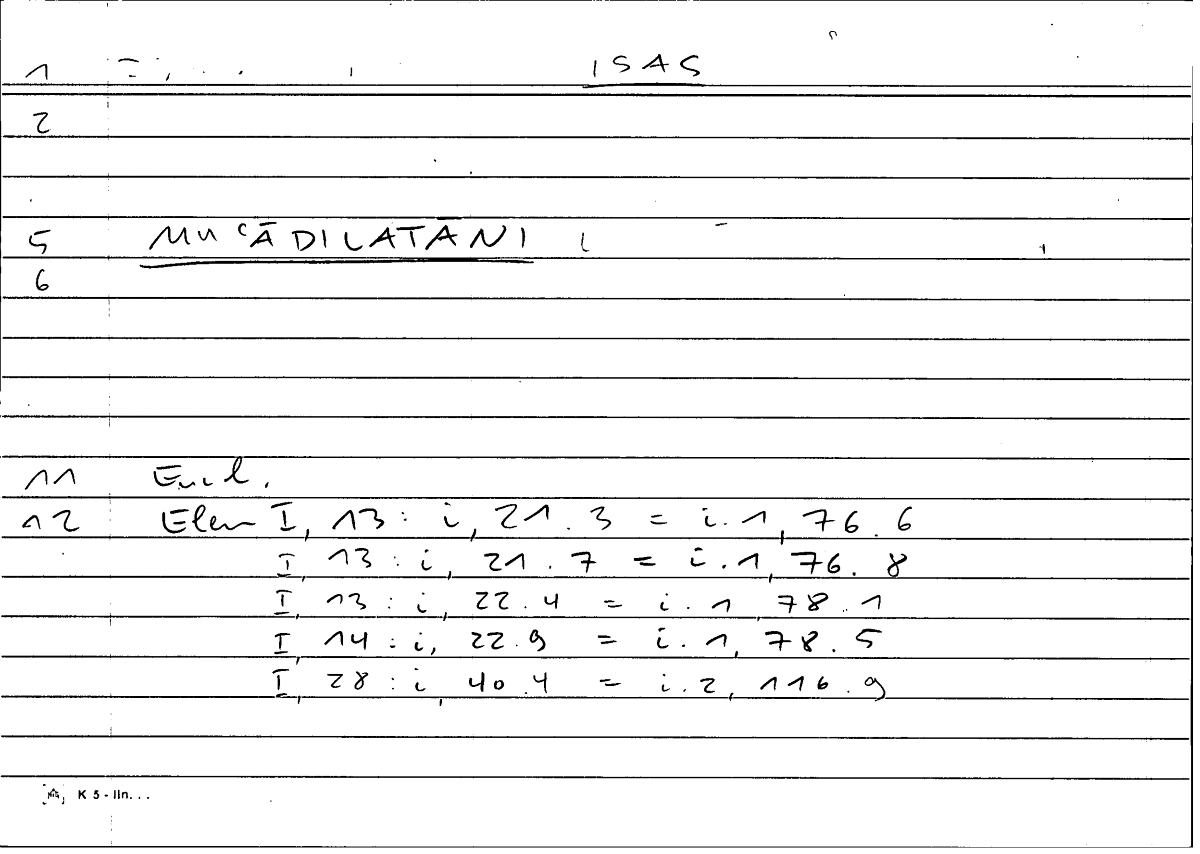 1 ISAS
2
5 MUʿĀDILATĀNI
6
11 Eucl.
12 Elem I, 13 : i, 21.3 = i.1, 76.6
I, 13 : i, 21.7 = i.1, 76.8
I, 13 : i, 22.4 = i.1, 78.1
I, 14 : i, 22.9 = i.1, 78.5
I, 28 : i, 40.4 = i.2, 116.9
K 5 - lin...